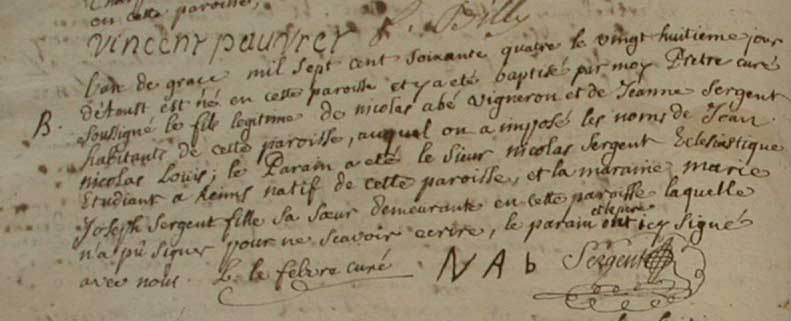 ou en cette paroisse,
vincent pauvret P. Billy
B.
l'an de grace mil sept cent soixante quatre le vingt huitieme jour
d'étoust est né en cette paroisse et y a eté baptisé par moy Pretre curé
soussigné le fils legitime de nicolas abé vigneron et de Jeanne Sergent
habitants de cette paroisse, auquel on a imposé les noms de Jean
nicolas Louis; le Parain a eté le sieur nicolas Sergent Eclesiastique
Etudiant a Reims natif de cette paroisse, et la maraine marie
Joseph Sergent fille sa sœur demeurante en cette paroisse laquelle
n'a pû signer pour ne scavoir ecrire, le parain et le pere ont icy signé
avec nous. L. le febvre curé NAb Sergent